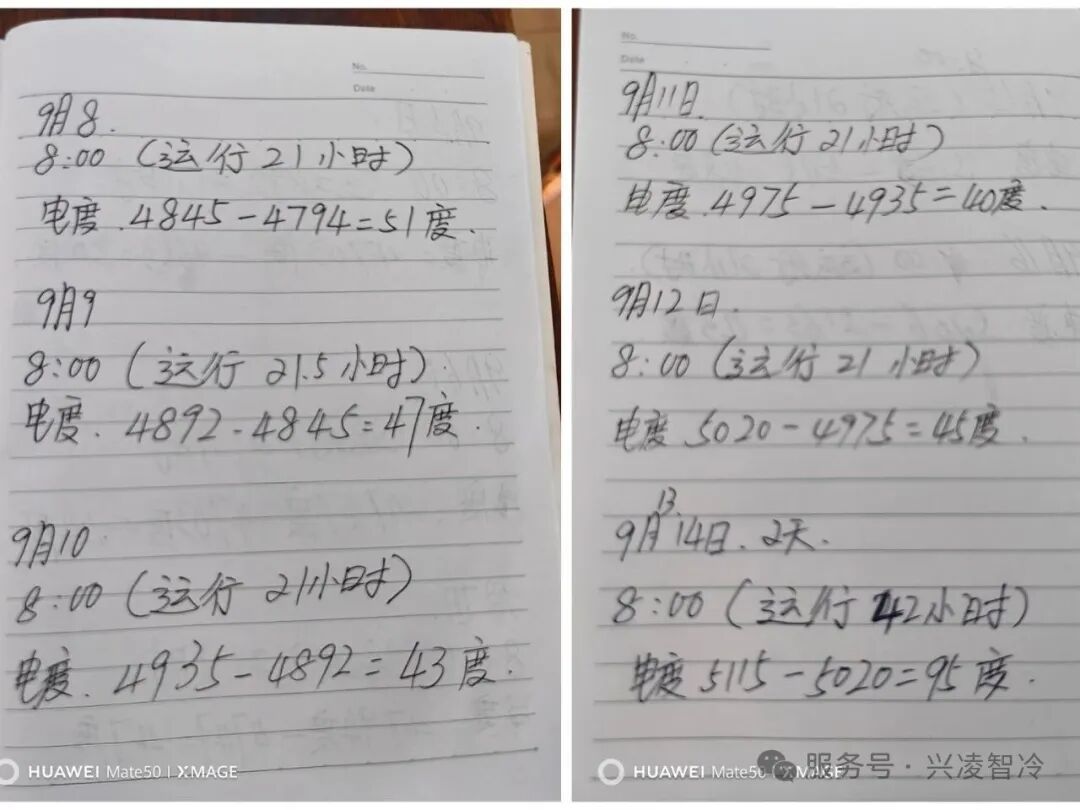 No.
Date
9月8.
8:00 (运行21小时)
电度.4845-4794=51度.
9月9
8:00 (运行 21.5小时)
电度.4892-4845=47度.
9月10
8:00 (运行 21小时)
电度.4935-4892=43度.
HUAWEI Mate50 | XMAGE
No.
Date
9月11日.
8:00 (运行 21小时)
电度.4975-4935=40度.
9月12日.
8:00 (运行 21 小时)
电度.5020-4975=45度.
13.
9月14日.2天.
8:00 (运行 42小时)
电度 5115-5020=95度.
HUAWEI Mate50 | XMAGE
服务号·兴凌智冷